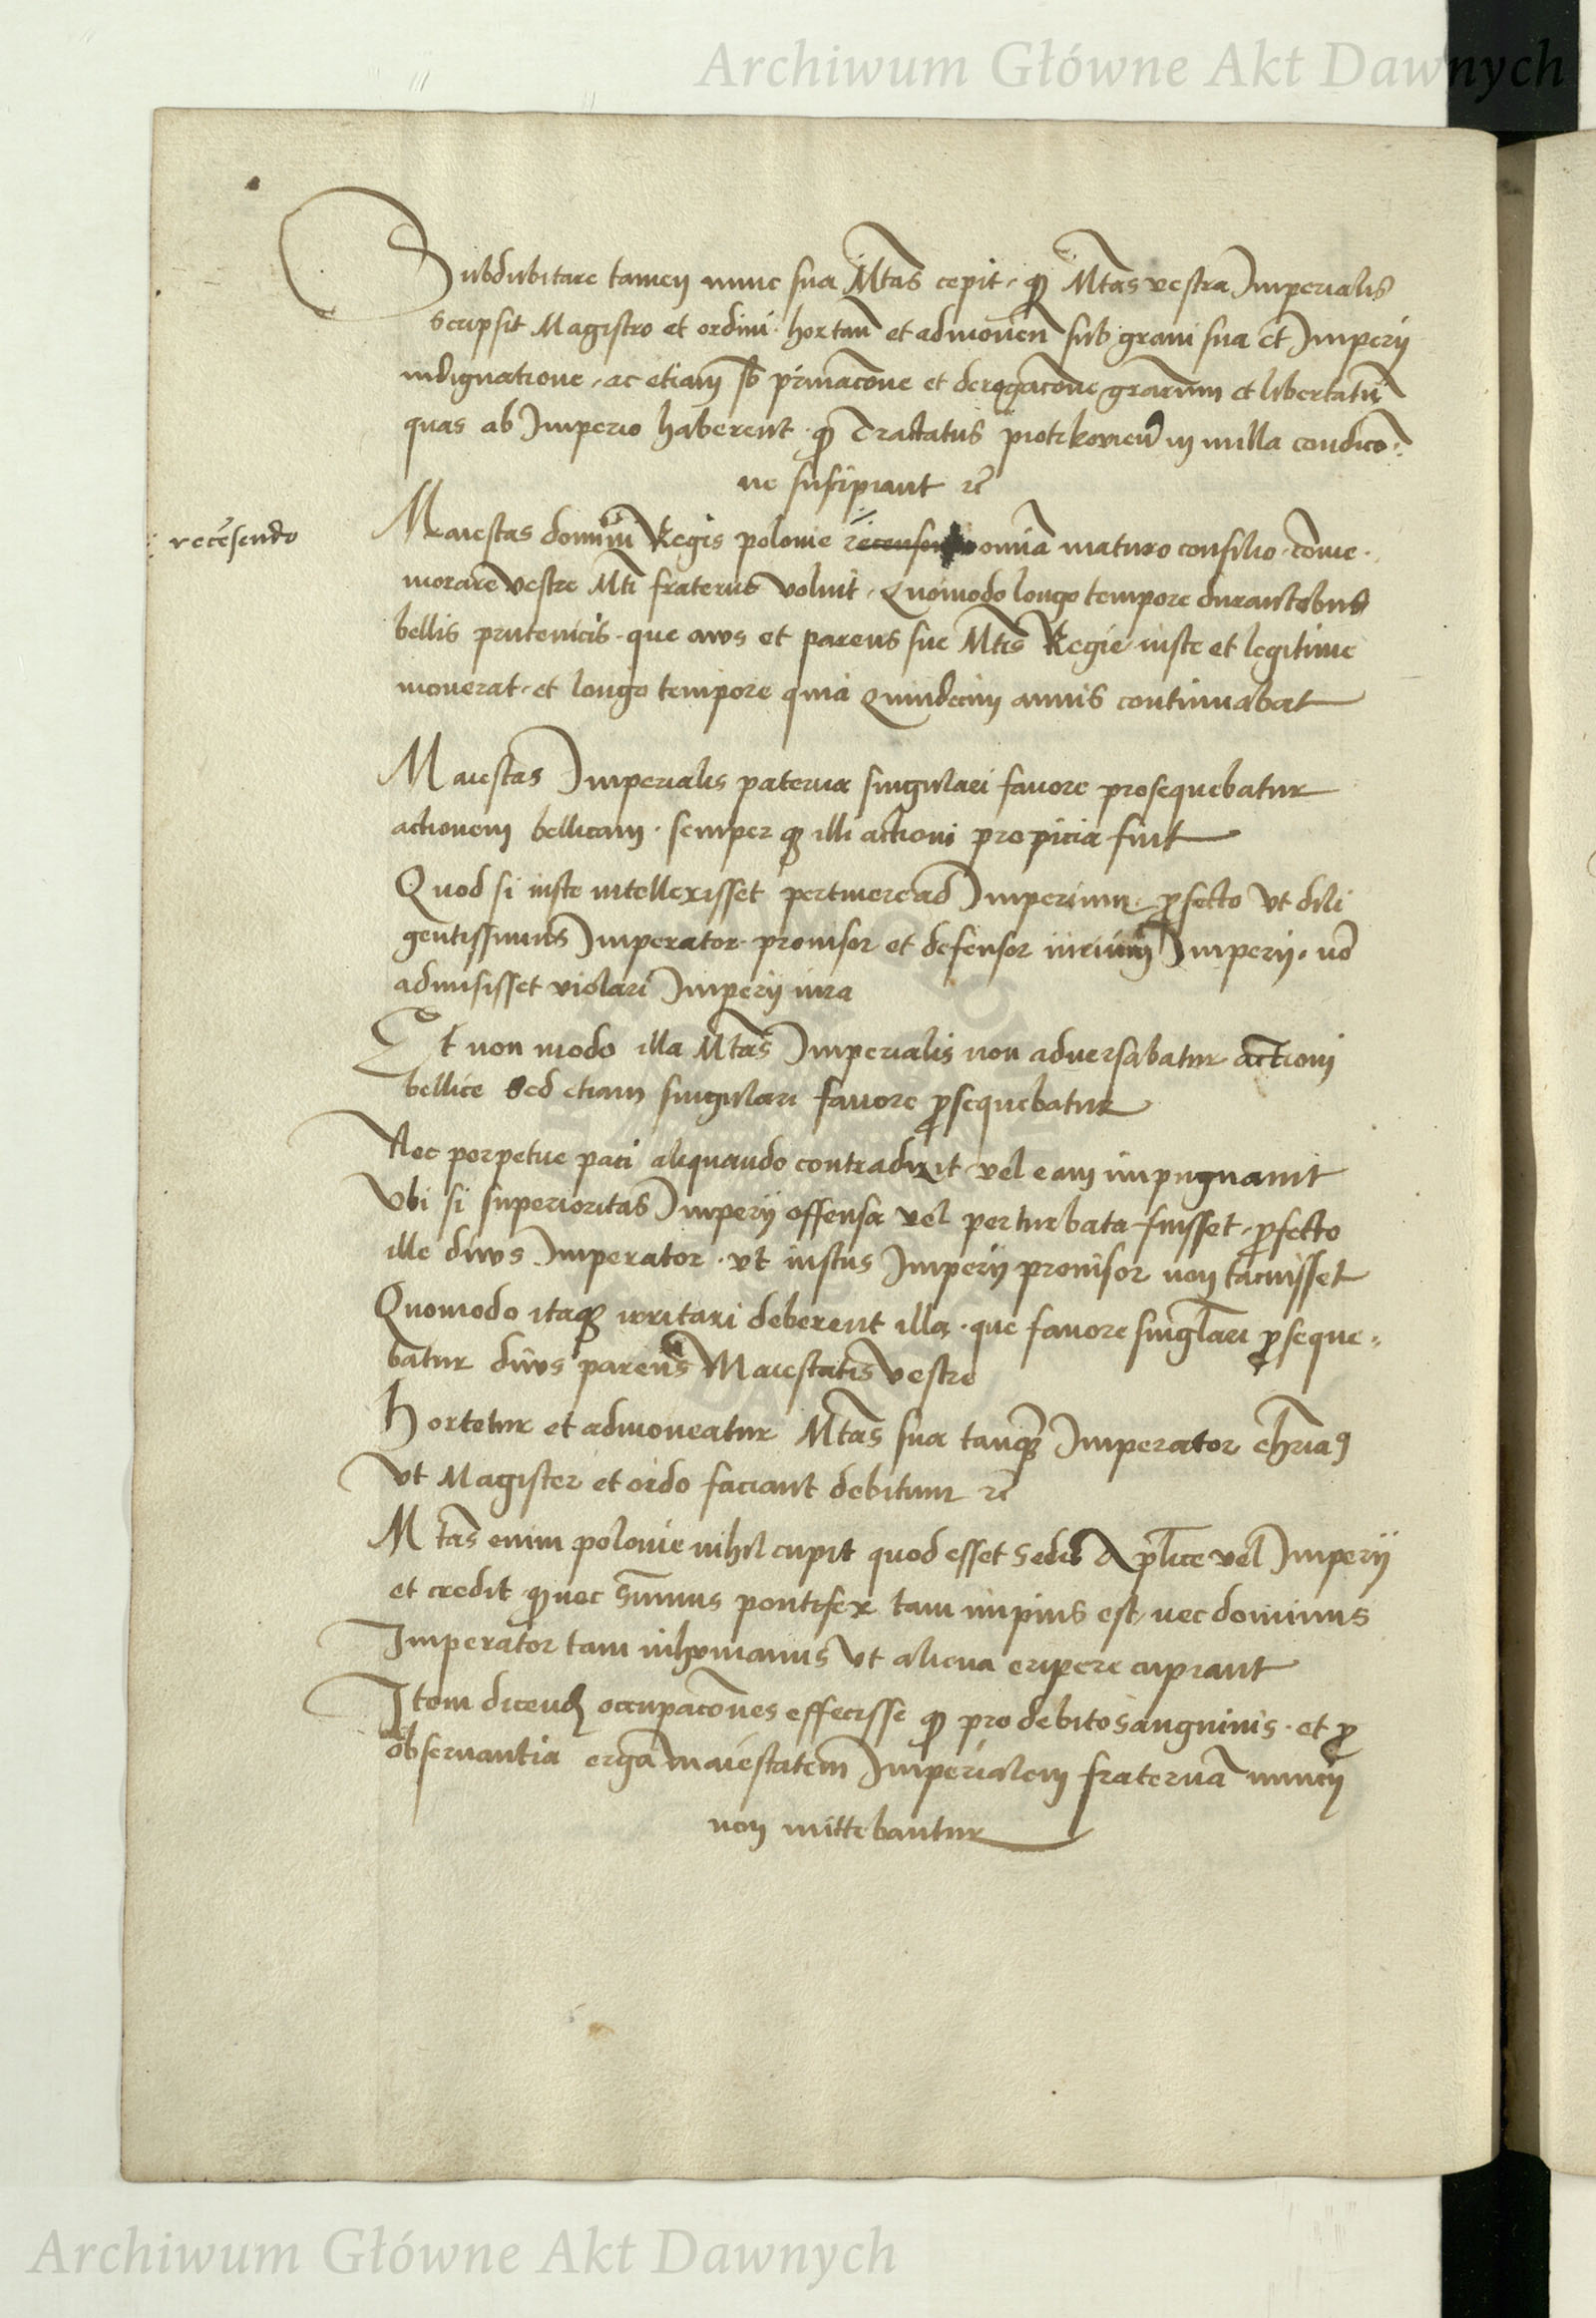 Archiwum Główne Akt Dawnych
Subdubitare tamen nunc sua Mtas cepit, qd Mtas vestra Imperialis
scripsit Magistro et ordini hortan et admonen sub gravi sua et Imperii
indignatione, ac etiam sb privacone et derogacone grarum et libertatu
quas ab Imperio haberent. qd Tractatus piotrkovien in nulla condico-
ne suscipiant rc
recesendo
Maiestas domini Regis polonie omnia maturo consilio come-
morare vestre Mti fraterne voluit, Quomodo longo tempore durantibus
bellis prutenicis que avus et parens sue Mtis Regie iuste et legitime
moverat, et longo tempore quia Quindecim annis continuabat
Maiestas Imperialis paterna singulari favore prosequebatur
actionem bellicam, semper q illi actioni propicia fuit
Quod si iuste intellexisset pertinere ad Imperium, profecto ut dili
gentissimus Imperator provisor et defensor iurium Imperii, no
admisisset violari Imperii iura
Et non modo illa Mtas Imperialis non adversabatur actioni
bellice Sed etiam singulari favore prosequebatur
Nec perpetue paci aliquando contradixit vel eam impugnavit
Ubi si superioritas Imperii offensa vel perturbata fuisset, profecto
ille divus Imperator, ut iustus Imperii provisor non tacuisset
Quomodo itaq irritari deberent illa, que favore singlari proseque-
batur divus parens Maiestatis Vestre
Hortetur et admoneatur Mtas sua tanq Imperator chrianus
Ut Magister et ordo faciant debitum rc
Mtas enim polonie nihil cupit quod esset Sedis Aplice vel Imperii
et credit qd nec Summus pontifex tam impius est, nec dominus
Imperator tam inhumanus Ut aliena eripere cupiant
Item dicend occupacones effecisse qd pro debito sanguinis et pro
observantia erga maiestatem Imperialem fraterna nuncii
non mittebantur
Archiwum Główne Akt Dawnych